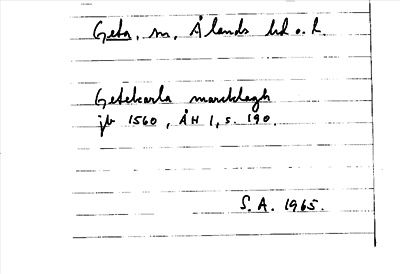 Geta, m, Ålands hd o. l.
Getekarla marcklagh
jb 1560, ÅH 1, s. 190.
S. A. 1965.